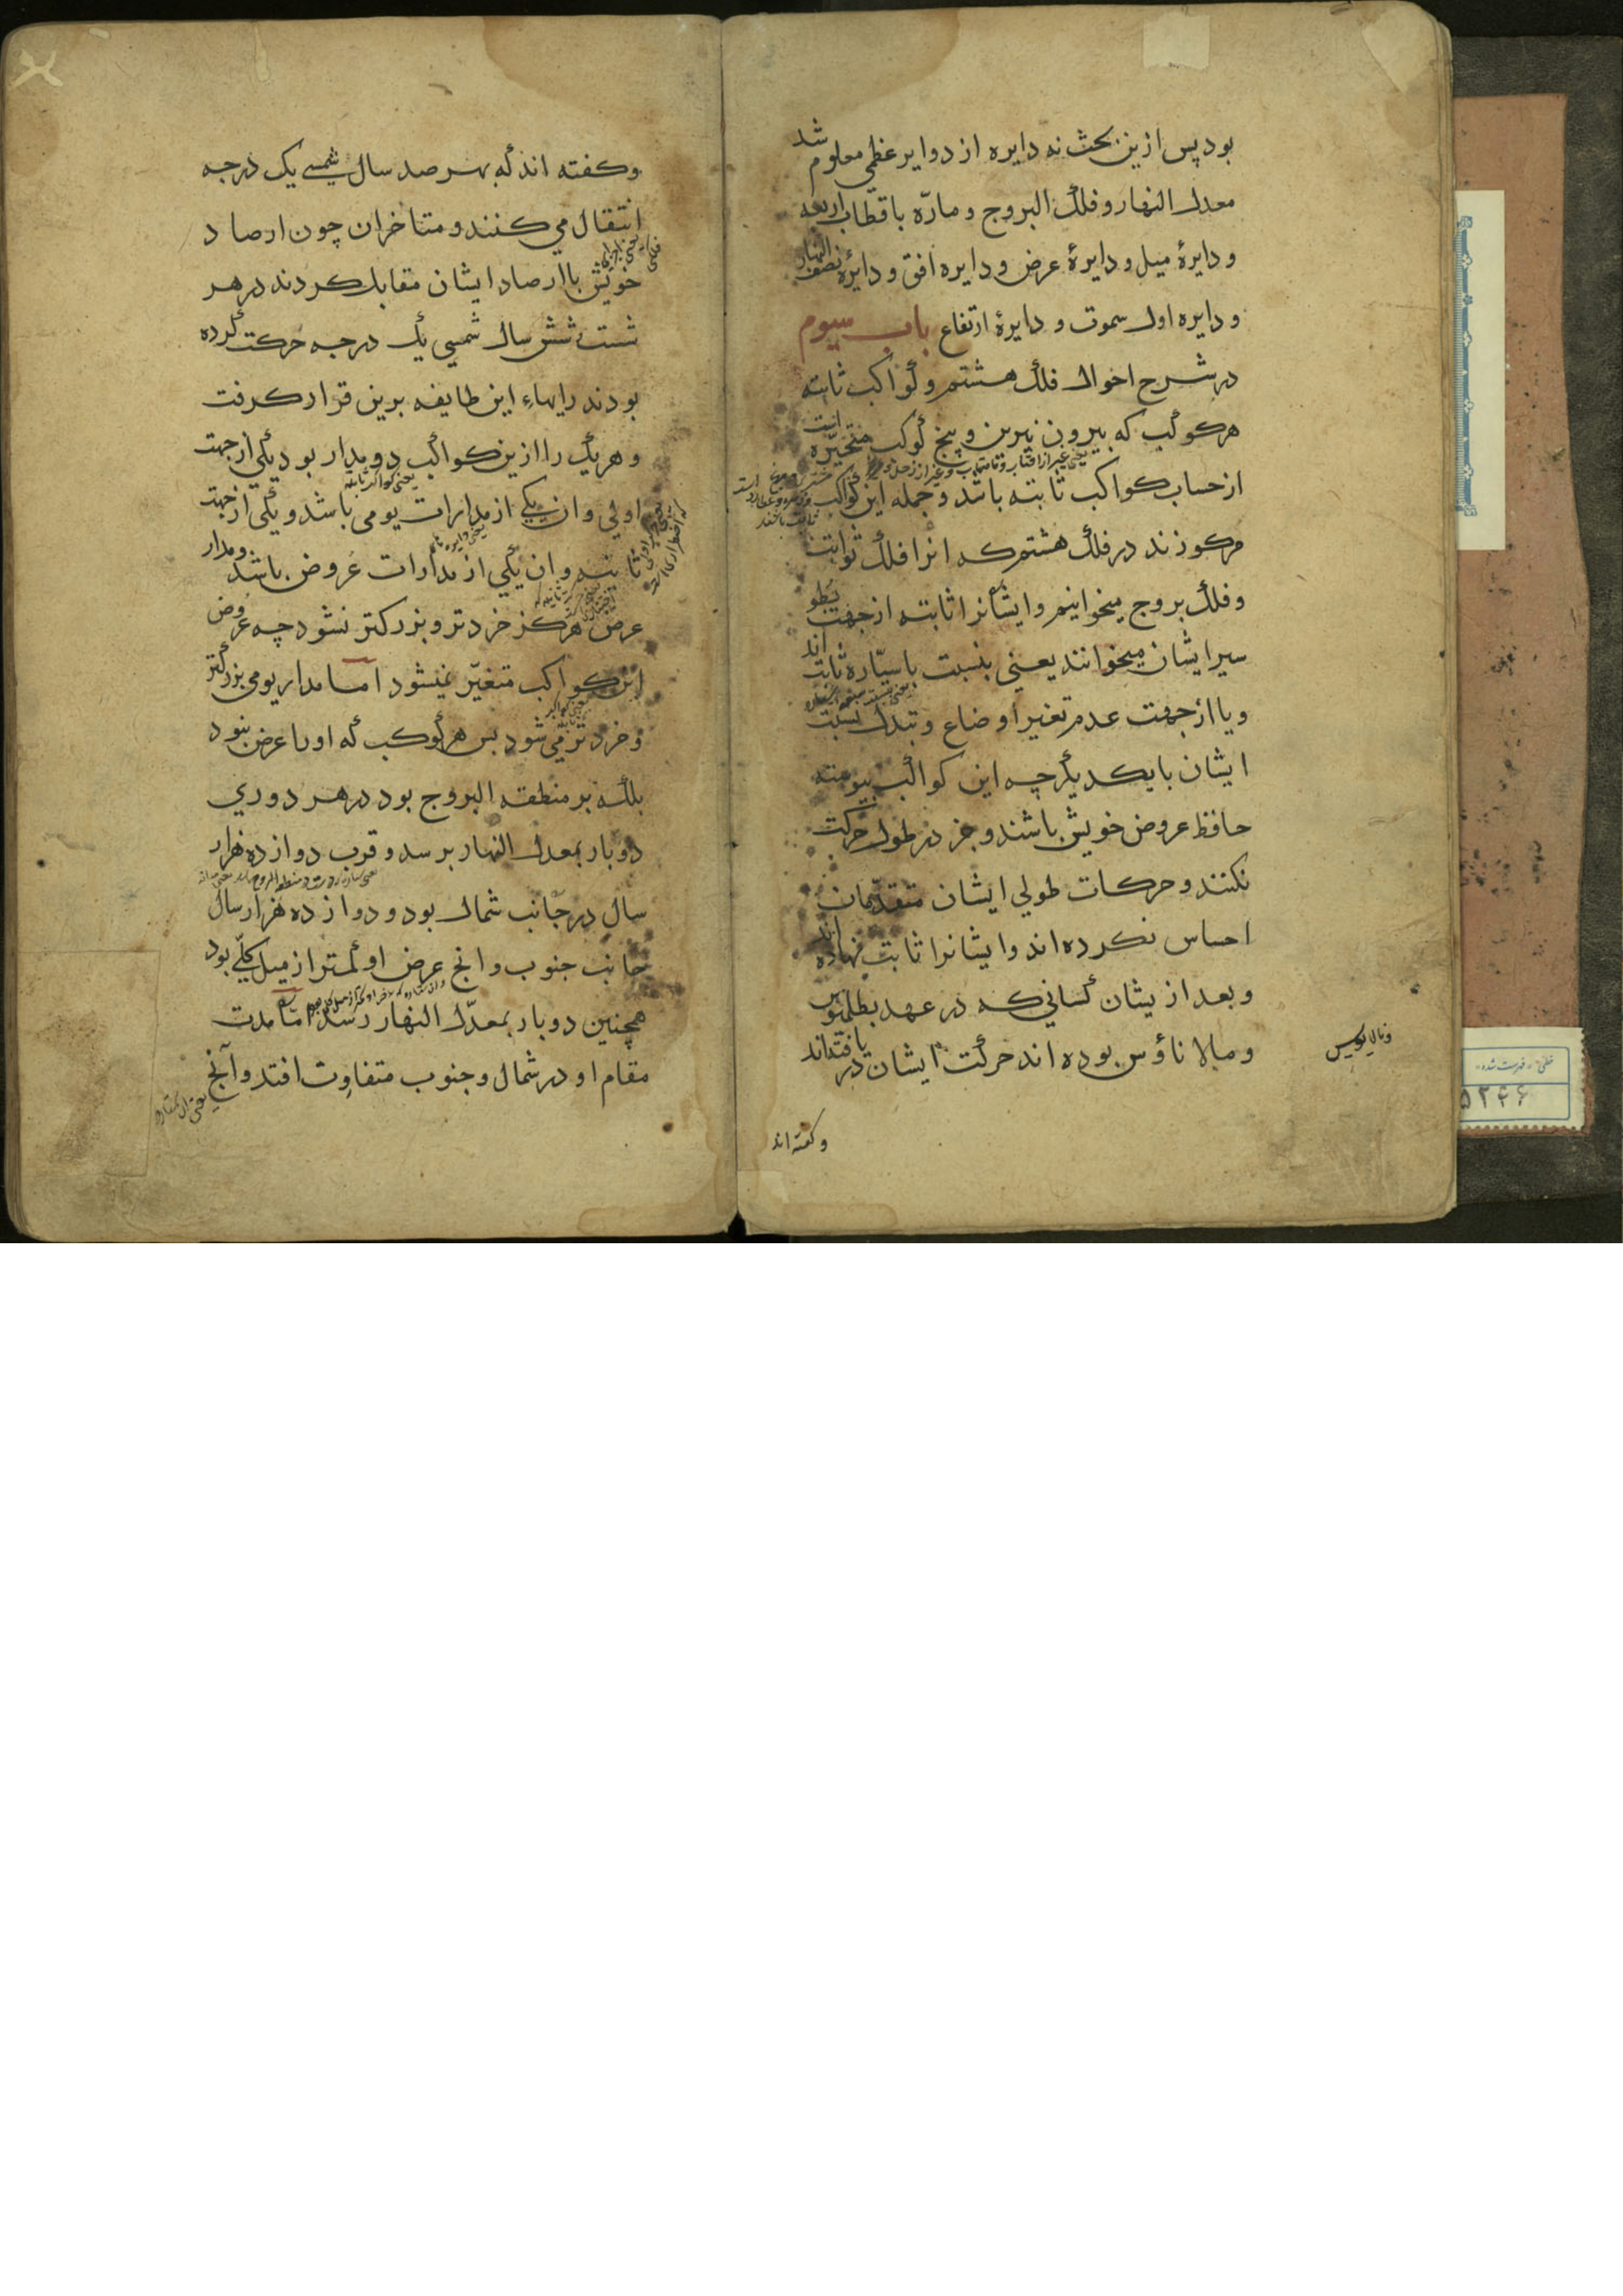 بود پس ازین بحث نه دایره از دوایر عظمی معلوم شد
معدل النهار و فلک البروج و مارّه باقطاب اربعه
و دایرۀ میل و دایرۀ عرض و دایره افق و دایرۀ نصف النهار
و دایره اول سموت و دایرۀ ارتفاع باب سیوم
در شرح احوال فلک هشتم و کواکب ثابته
هر کوکب که بیرون نیرین و پنج کوکب متحیّره است
از حساب کواکب ثابته باشد و جمله این کواکب
مرکوزند در فلک هشتم که انرا فلک ثوابت
و فلک بروج میخوانیم و ایشانرا ثابته از جهت بطو
سیر ایشان میخوانند یعنی بنسبت با سیّاره ثابت اند
و یا از جهت عدم تغیر اوضاع و تبدل نسبت
ایشان با یکدیگر چه این کواکب پیوسته
حافظ عروض خویش باشند و جز در طول حرکت
نکنند و حرکات طولی ایشان متقدّمان
احساس نکرده اند و ایشانرا ثابت نهاده اند
و بعد از یشان کسانی که در عهد بطلمیوس
و مالاناؤس بوده اند حرکت ایشان در یافته اند
و گفته اند
وکفته اند که بهر صد سال شمسی یک درجه
انتقال می کنند و متاخران چون ارصاد
خویش با ارصاد ایشان مقابل کردند در هر
شست شش سال شمسی یک درجه حرکت کرده
بودند رایهاء این طایفه برین قرار کرفت
و هر یک را ازین کواکب دو مدار بود یکی از جهت
اولی و ان یکی از مدارات یومی باشد و یکی از جهت
ثانیه و ان یکی از مدارات عروض باشد و مدار
عرض هرکز خردتر و بزرکتر نشود چه عروض
این کواکب متغیّر نمیشود اما مدار یومی بزرکتر
و خردتر می شود بس هر کوکب که اورا عرض نبود
بلکه بر منطقه البروج بود در هر دوری
دو بار بمعدل النهار برسد و قرب دوازده هزار
سال در جانب شمال بود و دوازده هزار سال
جانب جنوب و انچ عرض او کمتر از میل کلّی بود
همچنین دو بار بمعدّل النهار رسد امّا مدت
مقام او در شمال و جنوب متفاوت افتد و آنچ